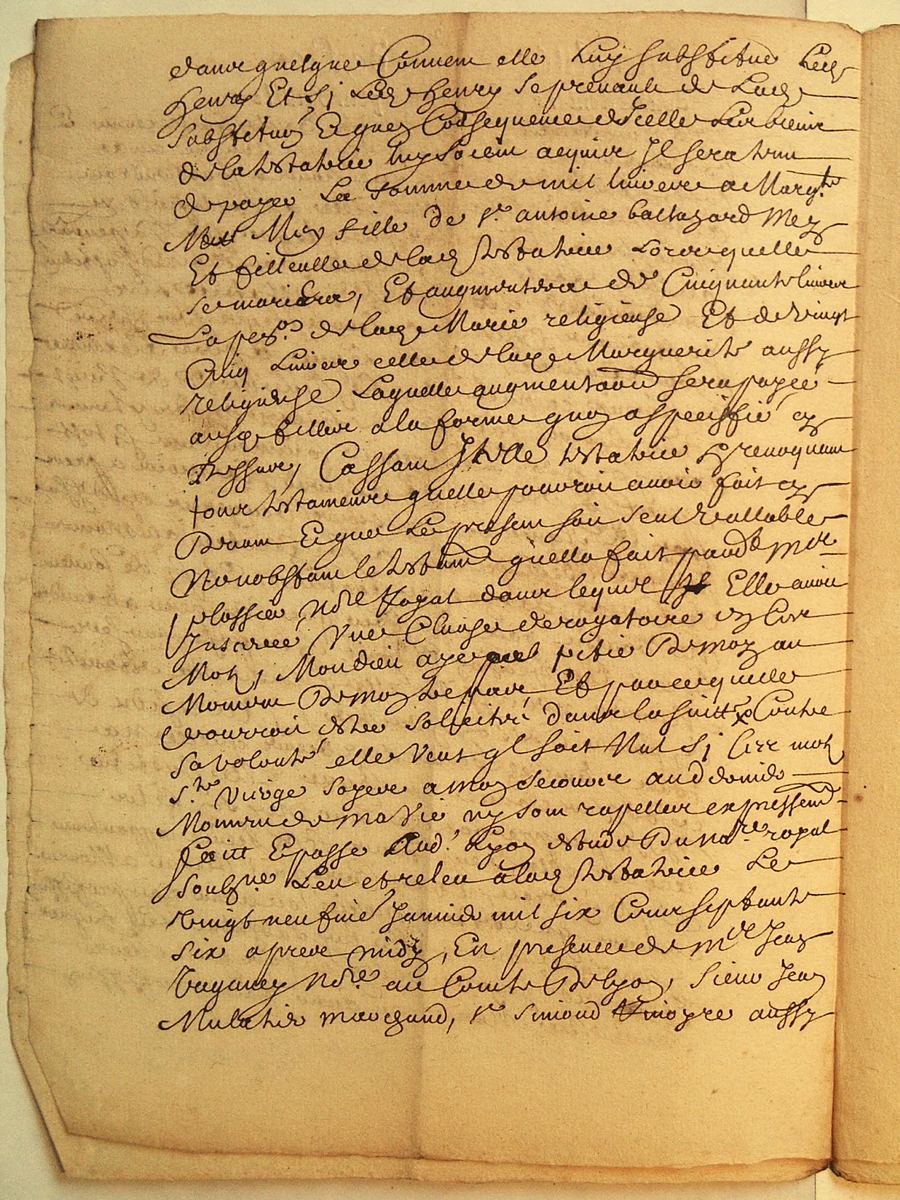 dans quelque Convent elle luy substitue led.
Henry Et si led. Henry se prevault de lad.
substitu^on Et que Consequence d'Icelle les biens
de la testatrice luy soient acquis Il sera tenu
de payer La somme de mil livres a Marg^te
Mey fille de s^r antoine baltazard Mey
Et filleulle de lad. testatrice Lorsquelle
se mariera, Et augmentera de Cinquante livres
La pen^on de lad. Marie religieuse Et de vingt
Cinq Livres celle de lad. Marguerite aussy
religieuse Laquelle augmentation sera payée
a la forme quoy a speciffié cy
dessus, Cassant Icelle testatrice Et revoquant
tous testamens quelle pourroit avoir fait cy
Devant Et que Le present soit seul vallable
Nonobstant le testam^t quelle fait pard^t M^e
No^re Royal dans lequel Elle avoit
Inserée Une Clause derogatoire en Ces
Motz, Mon dieu ayes pitié De moy au
Moment De mon trespas Et parce quelle
pourroit estre solicitée dans la suitte Contre
sa volonté elle Veut q'il soit Nul si Ces motz
s^te Vierge soyes a mon secours au dernier
Moment de ma Vie ny sont rapellez expressem^t
faitt Et passé Aud. Lyon estude Du No^re royal
soubz^ne Leu et releu a lad. testatrice Le
vingt neufvie Janvier mil six Cens septante
six apres midy, En presence de M^e Jean
No^re au Comté De Lyon, sieur Jean
Mulatier marchand, s^r simond aussy